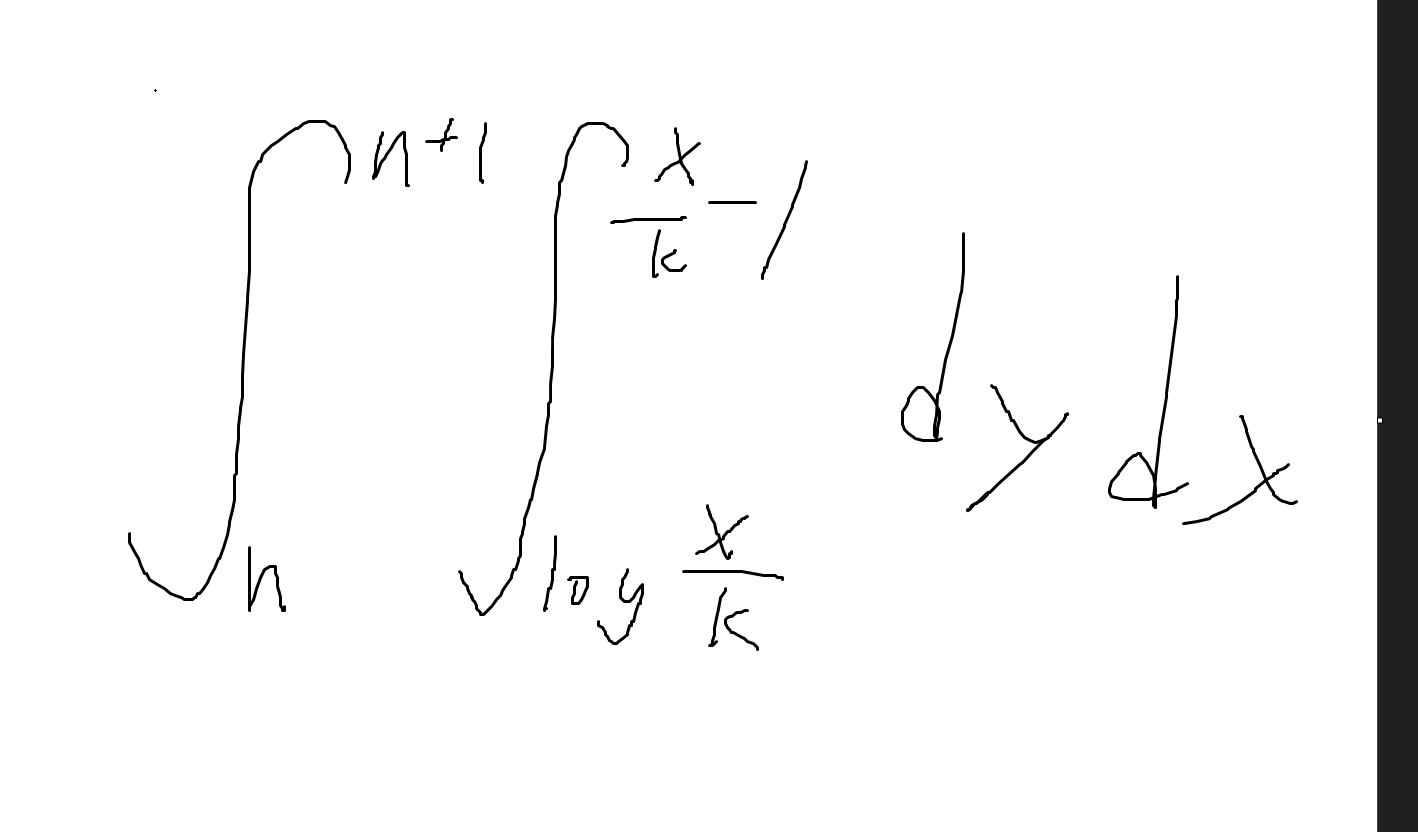 ∫_n^{n+1} ∫_{log x/k}^{x/k - 1} dy dx